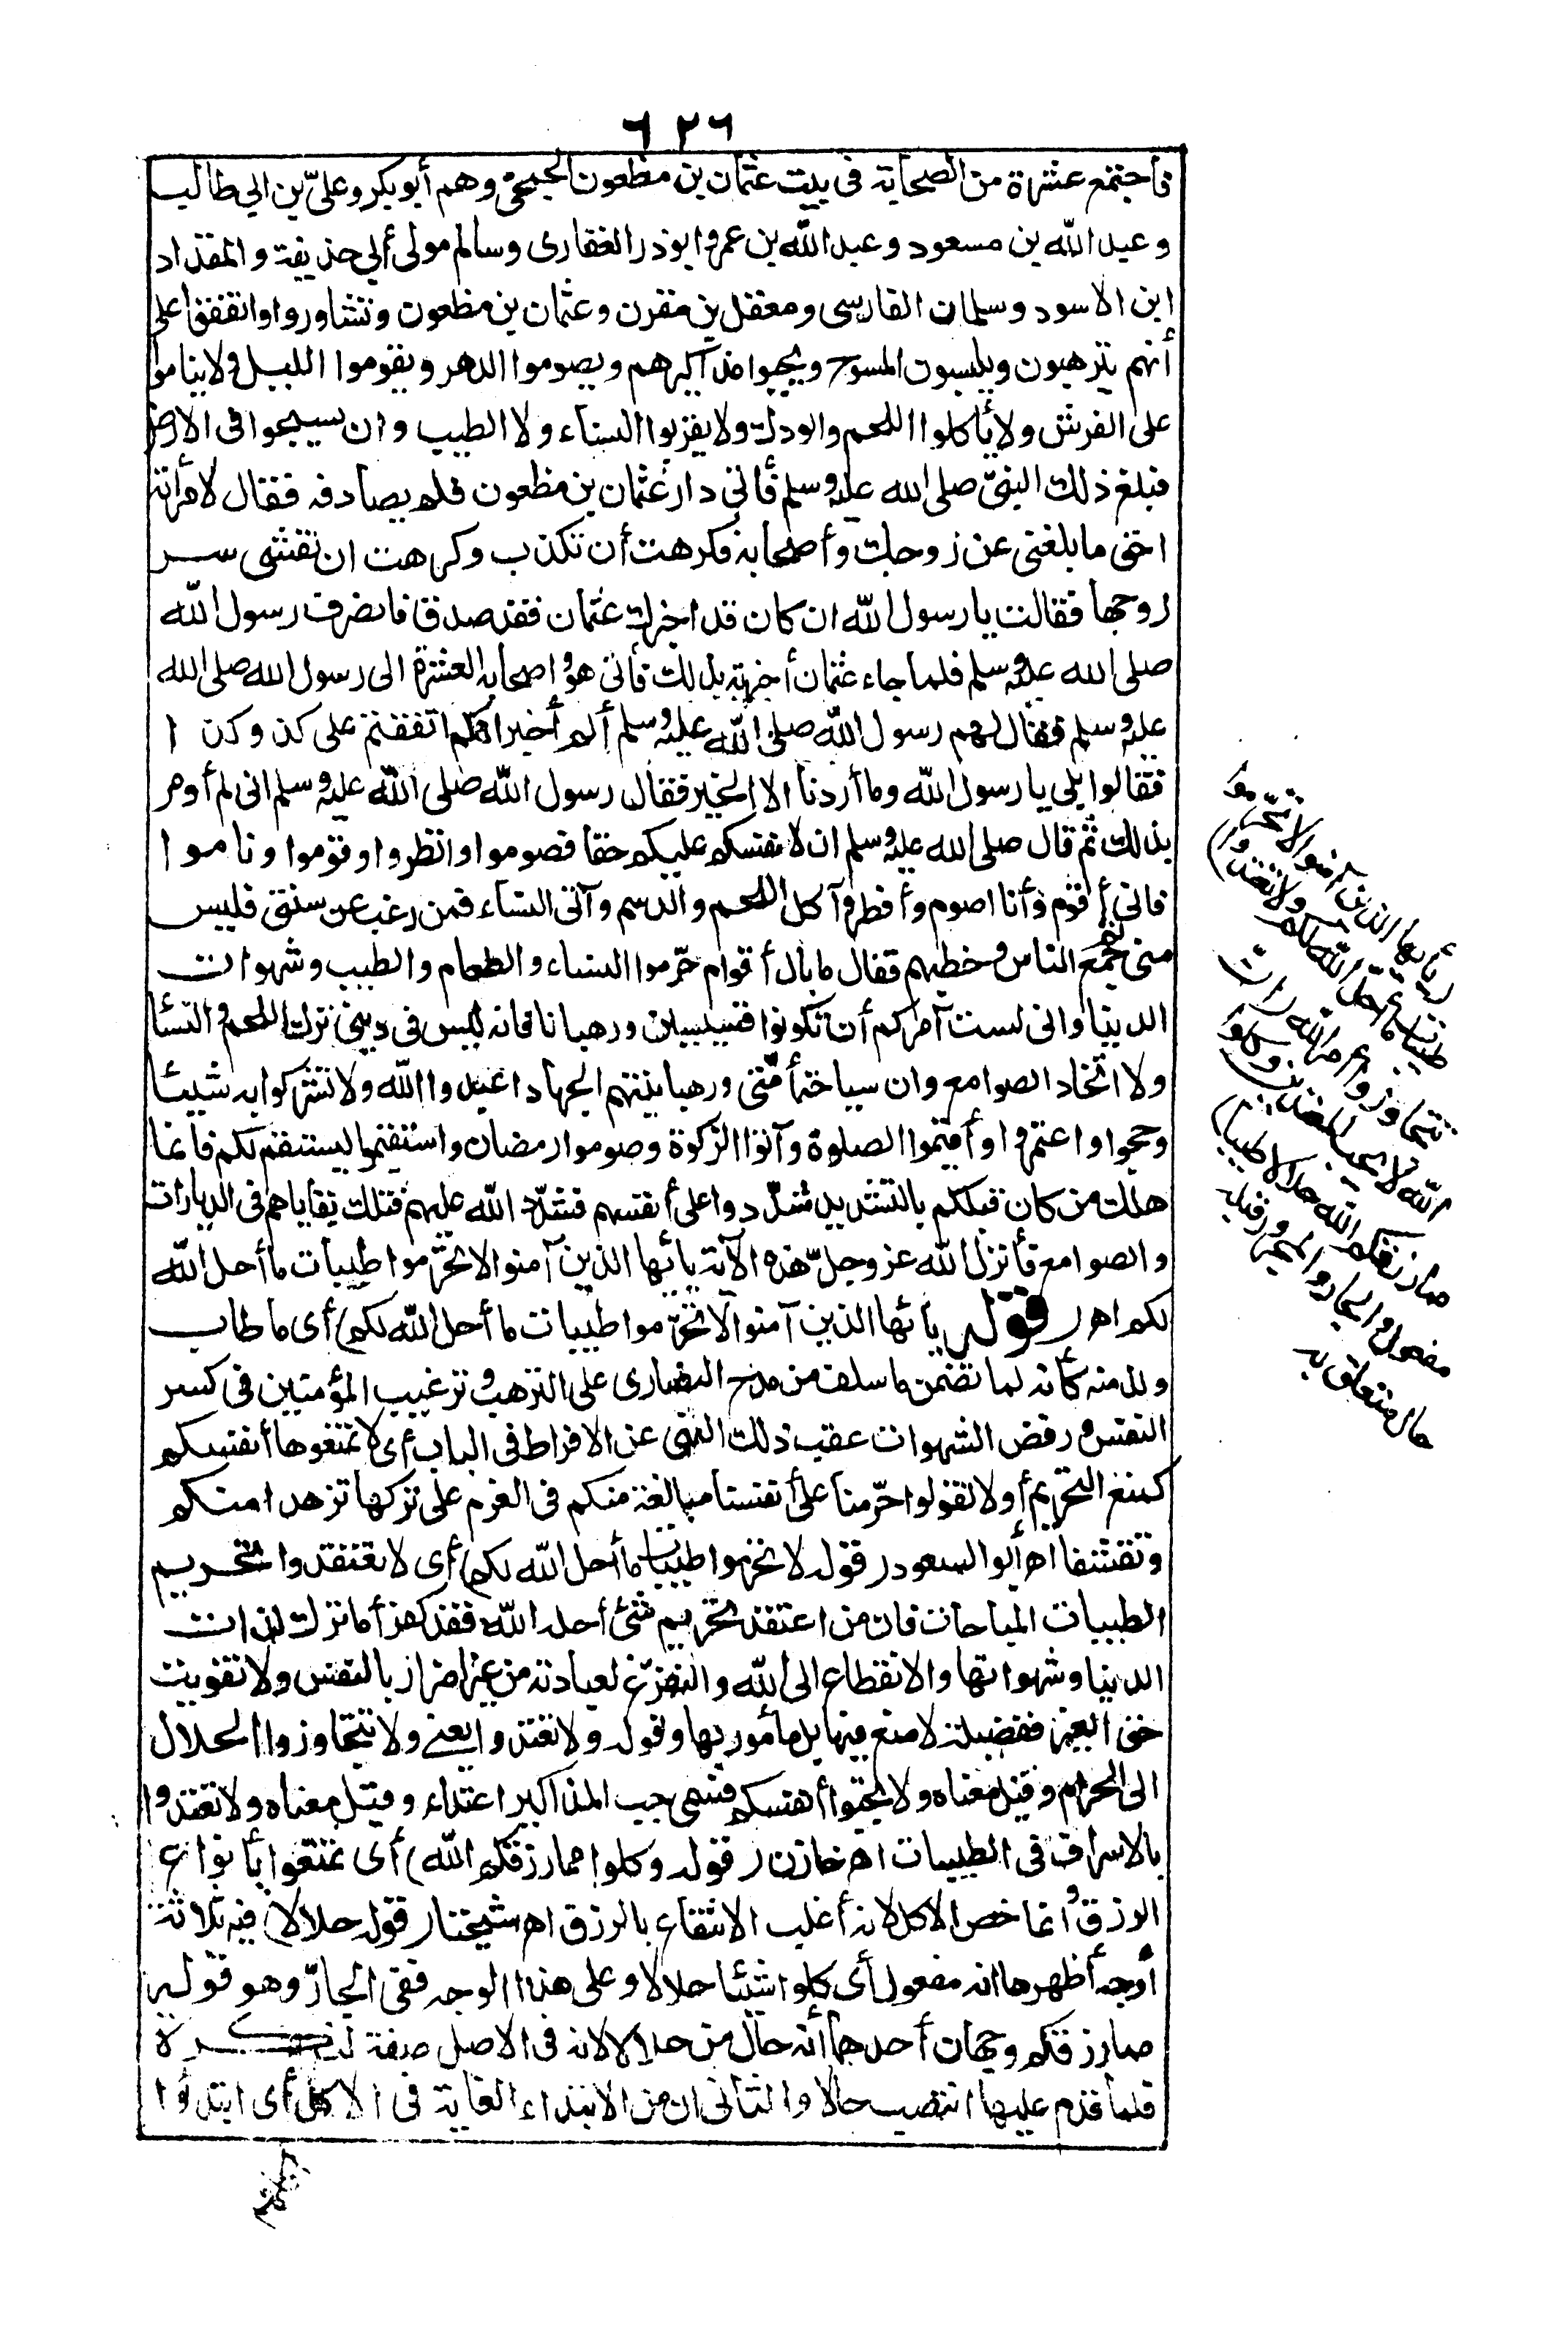 ٦٢٦
فاجتمع عشرة من الصحابة فى بيت عثمان بن مظعون الجمحى وهم أبو بكر وعلىّ بن ابي طالب
وعبد الله بن مسعود وعبد الله بن عمر وابوذر الغفارى وسالم مولى أبي حذيفة والمقداد
ابن الاسود وسلمان الفارسى ومعقل بن مقرن وعثمان بن مظعون وتشاوروا واتفقوا على
أنهم يترهبون ويلبسون المسوح ويجبوا مذاكيرهم ويصوموا الدهر ويقوموا الليل ولا يناموا
على الفرش ولا يأكلوا اللحم والودك ولا يقربوا النساء ولا الطيب وان يسيحوا فى الارض
فبلغ ذلك النبىّ صلى الله عليه وسلم فأتى دار عثمان بن مظعون فلم يصادفه فقال لامرأته
احق ما بلغنى عن زوجك وأصحابه فكرهت أن تكذب وكرهت ان تفشى سر
زوجها فقالت يا رسول الله ان كان قد اخبرك عثمان فقد صدق فانصرف رسول الله
صلى الله عليه وسلم فلما جاء عثمان أخبرته بذلك فأتى هو واصحابه العشرة الى رسول الله صلى الله
عليه وسلم فقال لهم رسول الله صلى الله عليه وسلم ألم أخبر انكم اتفقتم على كذا وكذا
فقالوا بلى يا رسول الله وما أردنا الا الخير فقال رسول الله صلى الله عليه وسلم انى لم أومر
بذلك ثم قال صلى الله عليه وسلم ان لانفسكم عليكم حقا فصوموا وافطروا وقوموا وناموا
فانى أقوم وأنا اصوم وأفطر وآكل اللحم والدسم وآتى النساء فمن رغب عن سنتى فليس
منى ثم جمع الناس وخطبهم فقال ما بال أقوام حرّموا النساء والطعام والطيب وشهوات
الدنيا وانى لست آمركم أن تكونوا قسيسين ورهبانا فانه ليس فى دينى ترك اللحم والنسا
ولا اتخاد الصوامع وان سياحة أمّتى ورهبانيتهم الجهاد اعبدوا الله ولا تشركوا به شيئا
وحجوا واعتمروا وأقيموا الصلوة وآتوا الزكوة وصوموا رمضان واستقيموا ليستقم لكم فانما
هلك من كان قبلكم بالتشديد شدّدوا على أنفسهم فشدّد الله عليهم فتلك بقاياهم فى الديارات
والصوامع فأنزل الله عز وجلّ هذه الآية يأيها الذين آمنوا لا تحرّموا طيبات ما أحل الله
لكم اهـ (قوله يأيها الذين آمنوا لا تحرّموا طيبات ما أحل الله لكم) أى ما طاب
ولذ منه كأنه لما تضمن ما سلف من مدح النصارى على الترهب وترغيب المؤمنين فى كسر
النفس ورفض الشهوات عقب ذلك النهى عن الافراط فى الباب أى لا تمنعوها أنفسكم
كمنع التحريم أو لا تقولوا حرّمنا على أنفسنا مبالغة منكم فى العزم على تركها تزهدا منكم
وتقشفا اهـ أبو السعود (قوله لا تحرّموا طيبات ما أحل الله لكم) أى لا تعتقدوا تحريم
الطيبات المباحات فان من اعتقد تحريم شئ أحله الله فقد كفر أما ترك لذات
الدنيا وشهواتها والانقطاع الى الله والتفرّغ لعبادته من غير اضرار بالنفس ولا تفويت
حق الغير ففضيلة لا منع فيها بل مأمور بها وقوله ولا تعتدوا يعنى ولا تتجاوزوا الحلال
الى الحرام وقيل معناه ولا تجبوا أنفسكم فسمى جب المذاكير اعتداء وقيل معناه ولا تعتدوا
بالاسراف فى الطيبات اهـ خازن (قوله وكلوا مما رزقكم الله) أى تمتعوا بأنواع
الرزق وانما خص الاكل لانه أغلب الانتفاع بالرزق اهـ شيخنا (قوله حلالا) فيه ثلاثة
أوجه أظهرها انه مفعول أى كلوا شيئا حلالا وعلى هذا الوجه ففى الجارّ وهو قوله
مما رزقكم وجهان أحدهما أنه حال من حلالا لانه فى الاصل صفة لنكرة
فلما قدم عليها انتصب حالا والثانى ان من لابتداء الغاية فى الاكل أى ابتدئوا
(يأيها الذين آمنوا لا تحرّموا
طيبات ما احل الله لكم ولا تعتدوا)
تتجاوزوا امر الله (ان
الله لا يحب المعتدين وكلوا
مما رزقكم الله حلالا طيبا)
مفعول والجار والمجرور قبله
حال متعلق به